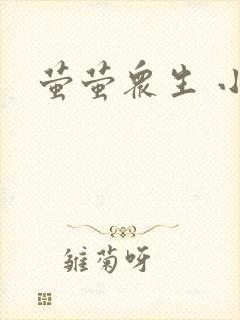 萤萤众生 小
雏菊呀